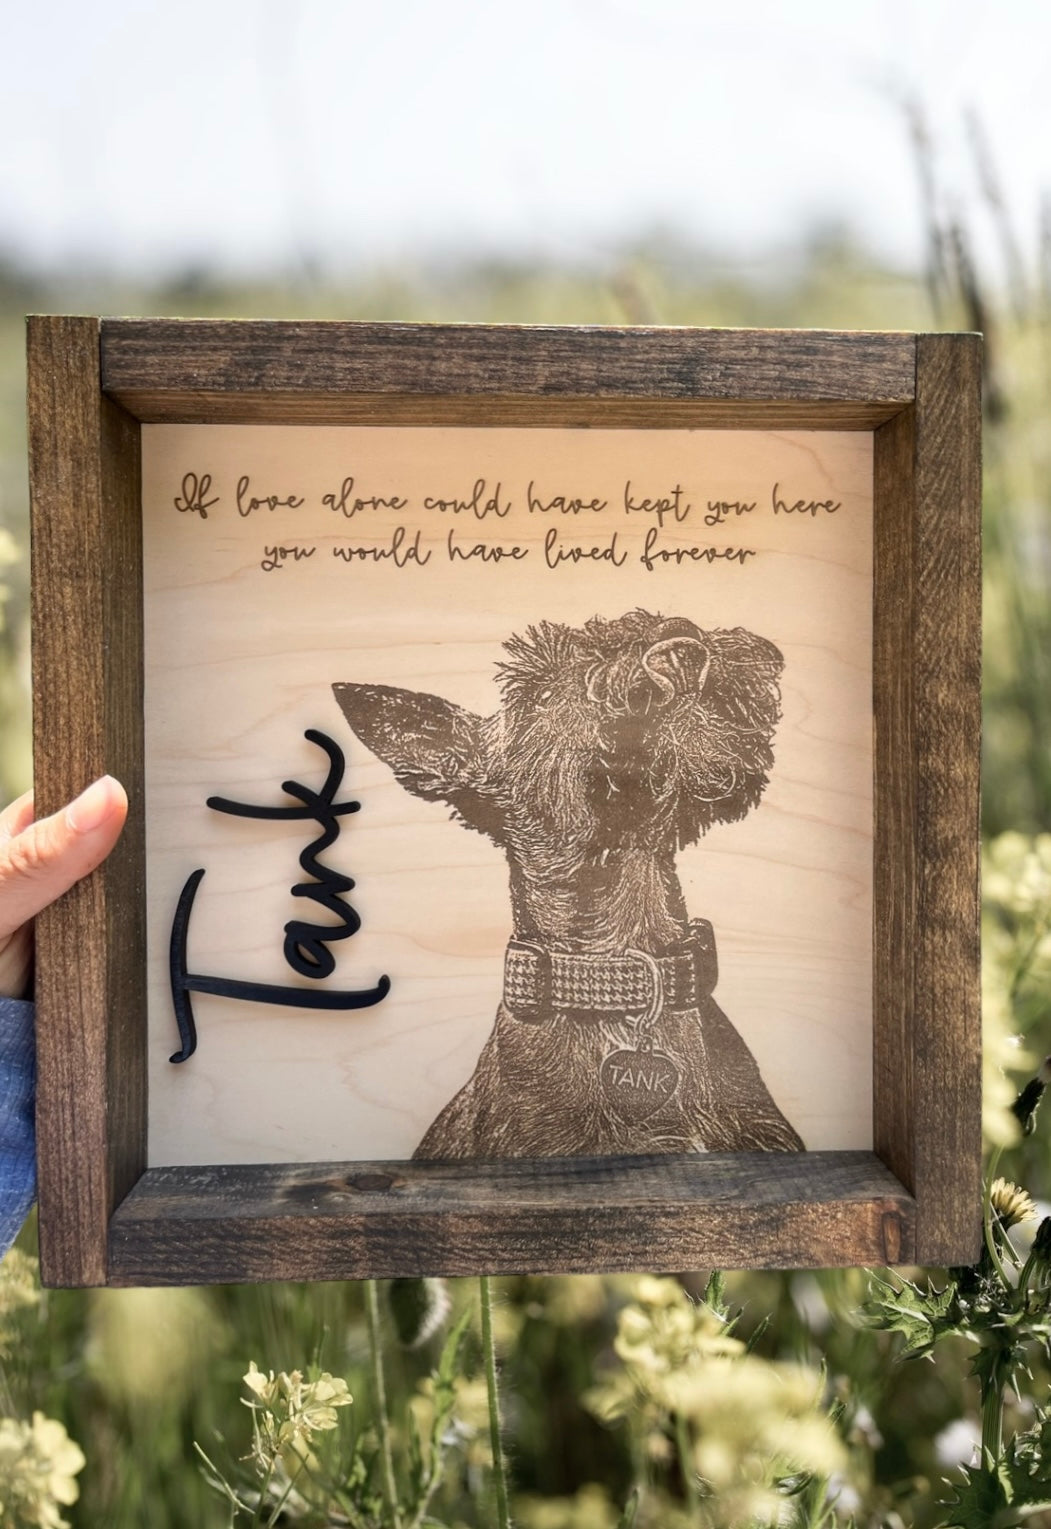 If love alone could have kept you here
you would have lived forever
Tank
TANK